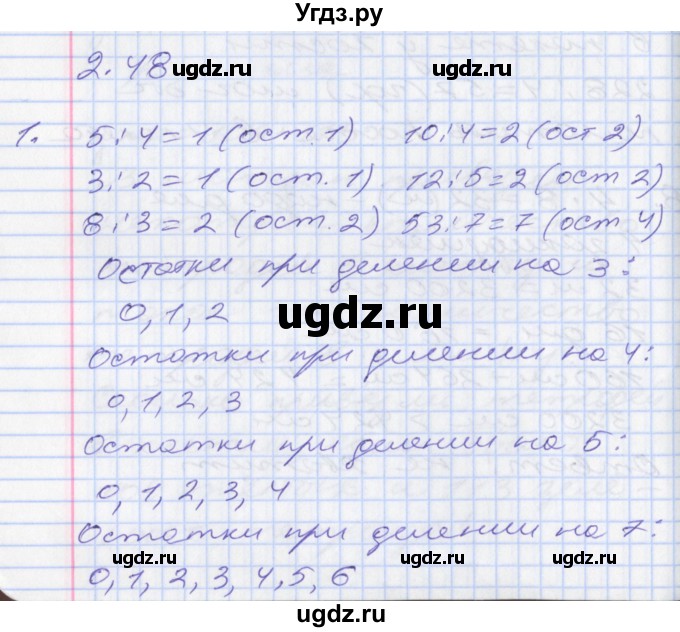 Угдз.ру
2.48 ugdz.ru ugdz.ru
1. 5:4=1 (ост.1) 10:4=2 (ост 2)
3:2=1 (ост. 1) 12:5=2 (ост 2)
8:3=2 (ост. 2) 53:7=7 (ост 4)
Остатки при делении на 3:
0, 1, 2
ugdz.ru
Остатки при делении на 4:
0, 1, 2, 3
Остатки при делении на 5:
0, 1, 2, 3, 4
Остатки при делении на 7:
ugdz.ru ugdz.ru
0, 1, 2, 3, 4, 5, 6
ugdz.ru